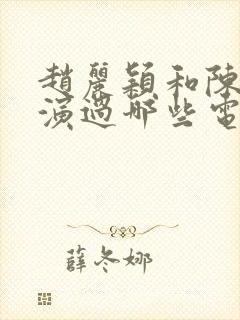 趙麗穎和陳
演過哪些電
薛冬娜